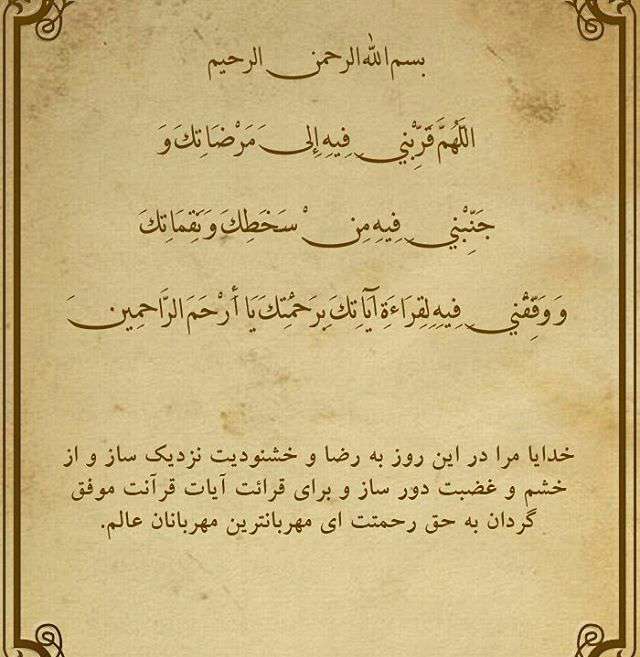 بسم الله الرحمن الرحیم
اللَهُمَّ قَرِّبْني فِيهِ إِلى مَرْضَاتِكَ وَ
جَنِّبْني فِيهِ مِنْ سَخَطِكَ وَ نِقِمَاتِكَ
وَ وَفِّقْني فِيهِ لِقِرَاءَةِ آيَاتِكَ بِرَحْمَتِكَ يَا أَرْحَمَ الرَّاحِمِينَ
خدایا مرا در این روز به رضا و خشنودیت نزدیک ساز و از
خشم و غضبت دور ساز و برای قرائت آیات قرآنت موفق
گردان به حق رحمتت ای مهربانترین مهربانان عالم.